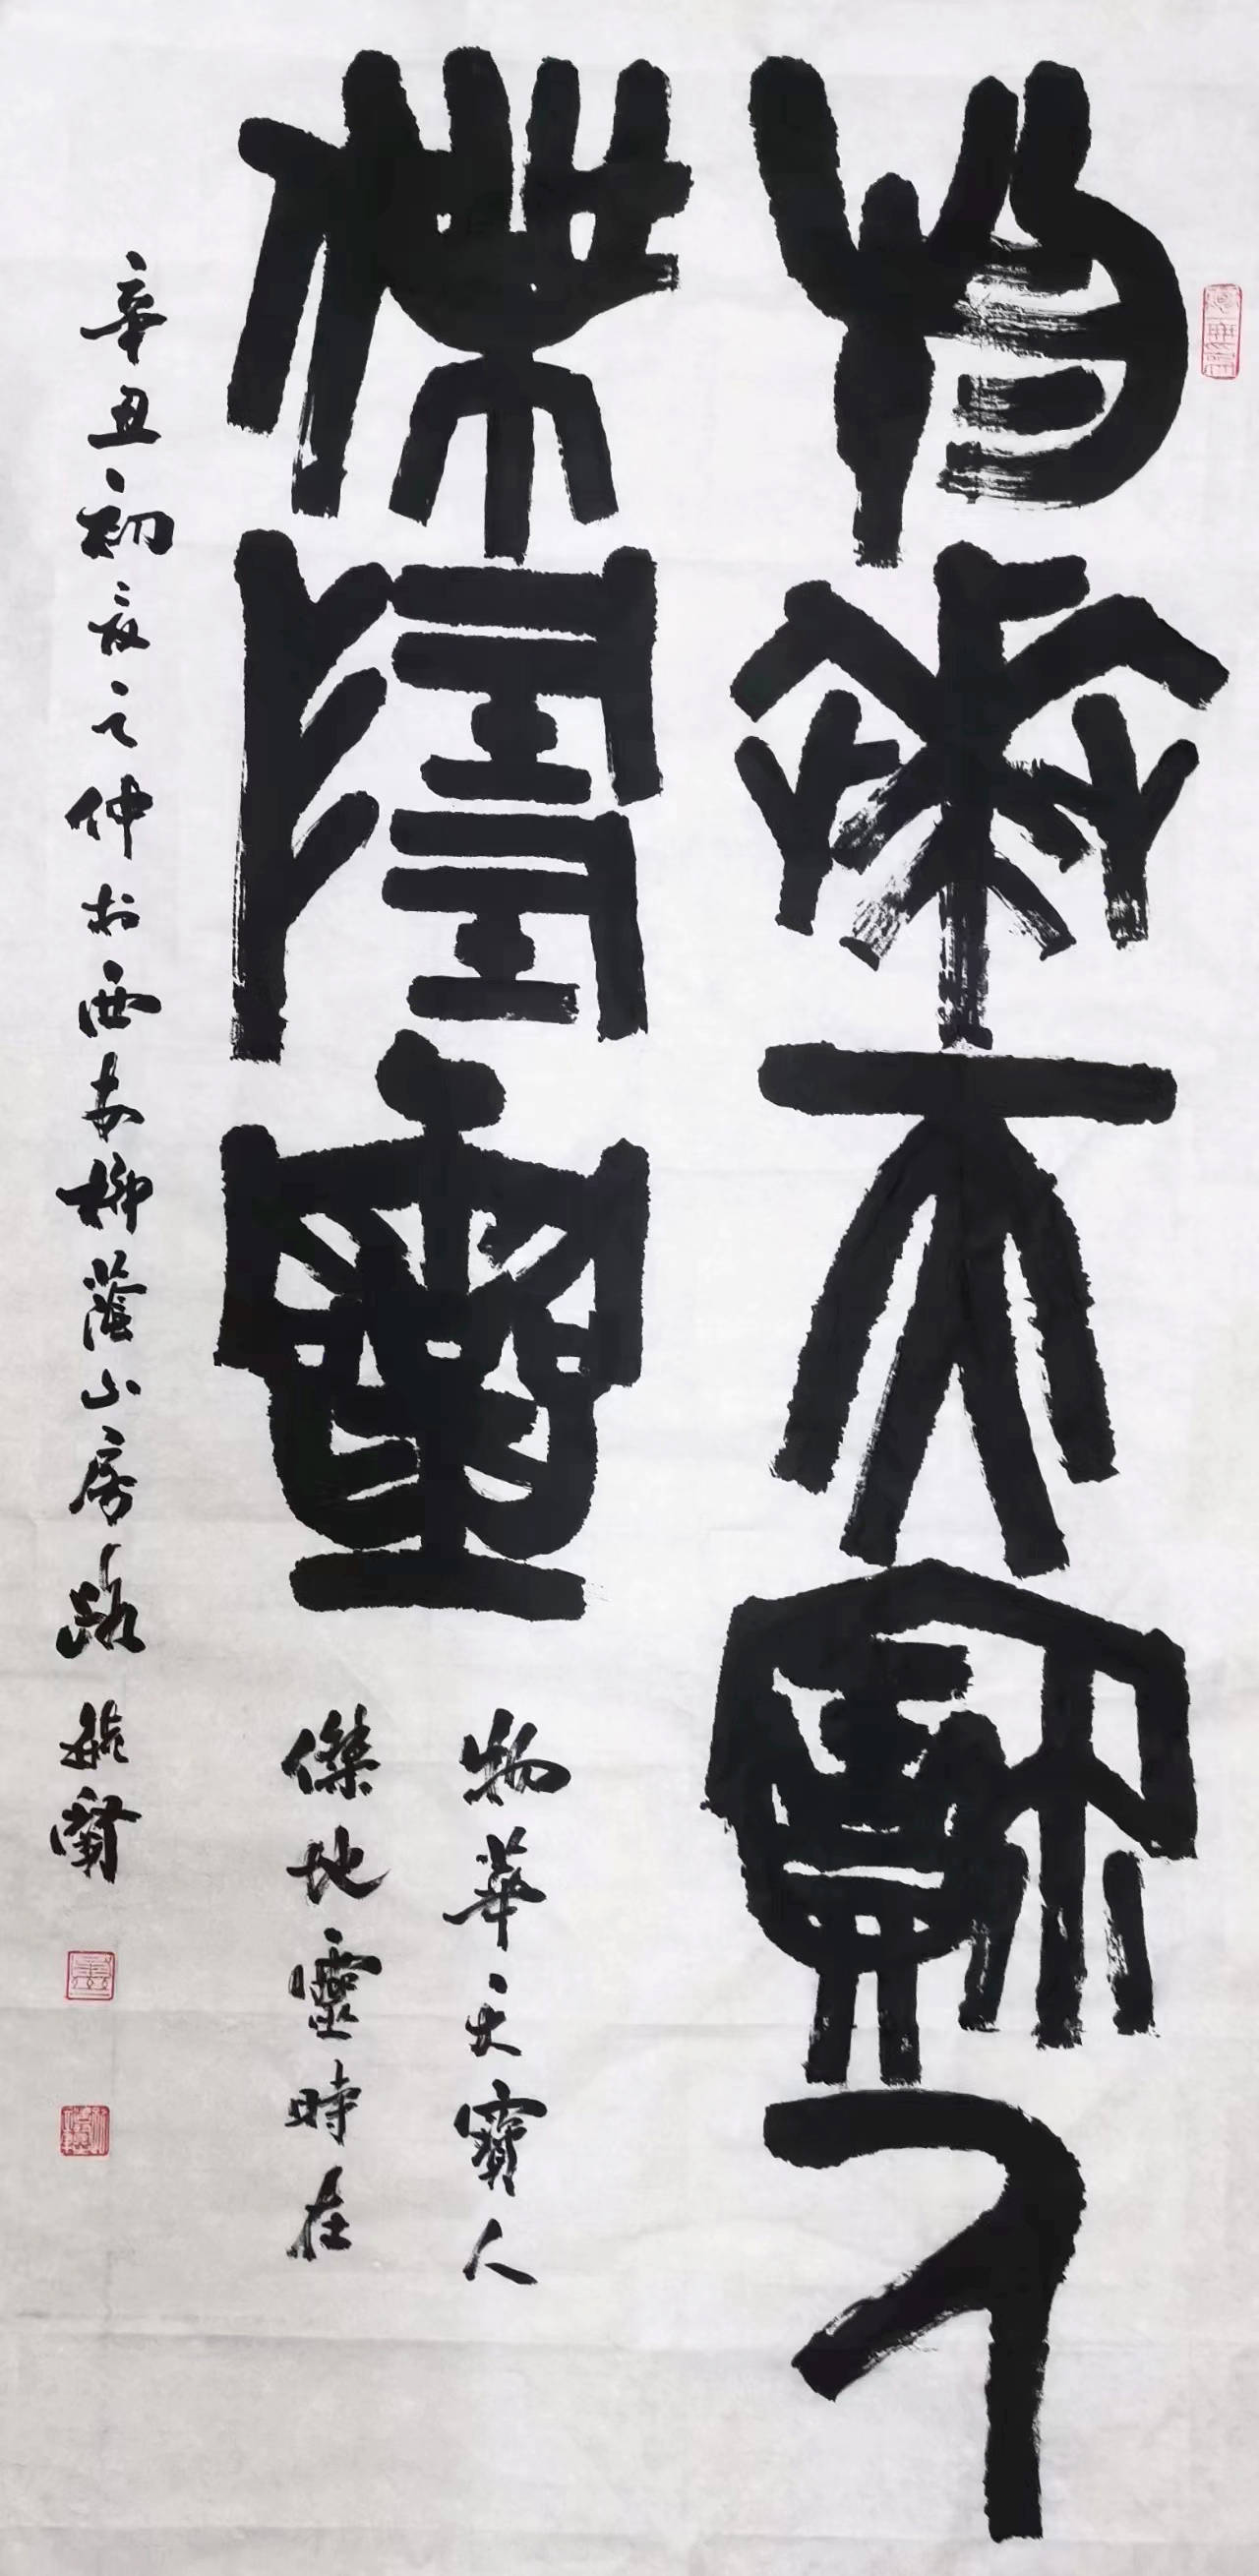 物華天寶人
傑地靈
物華天寶人
傑地靈時在
辛丑初夏之仲於西安柳蔭山房路毓賢